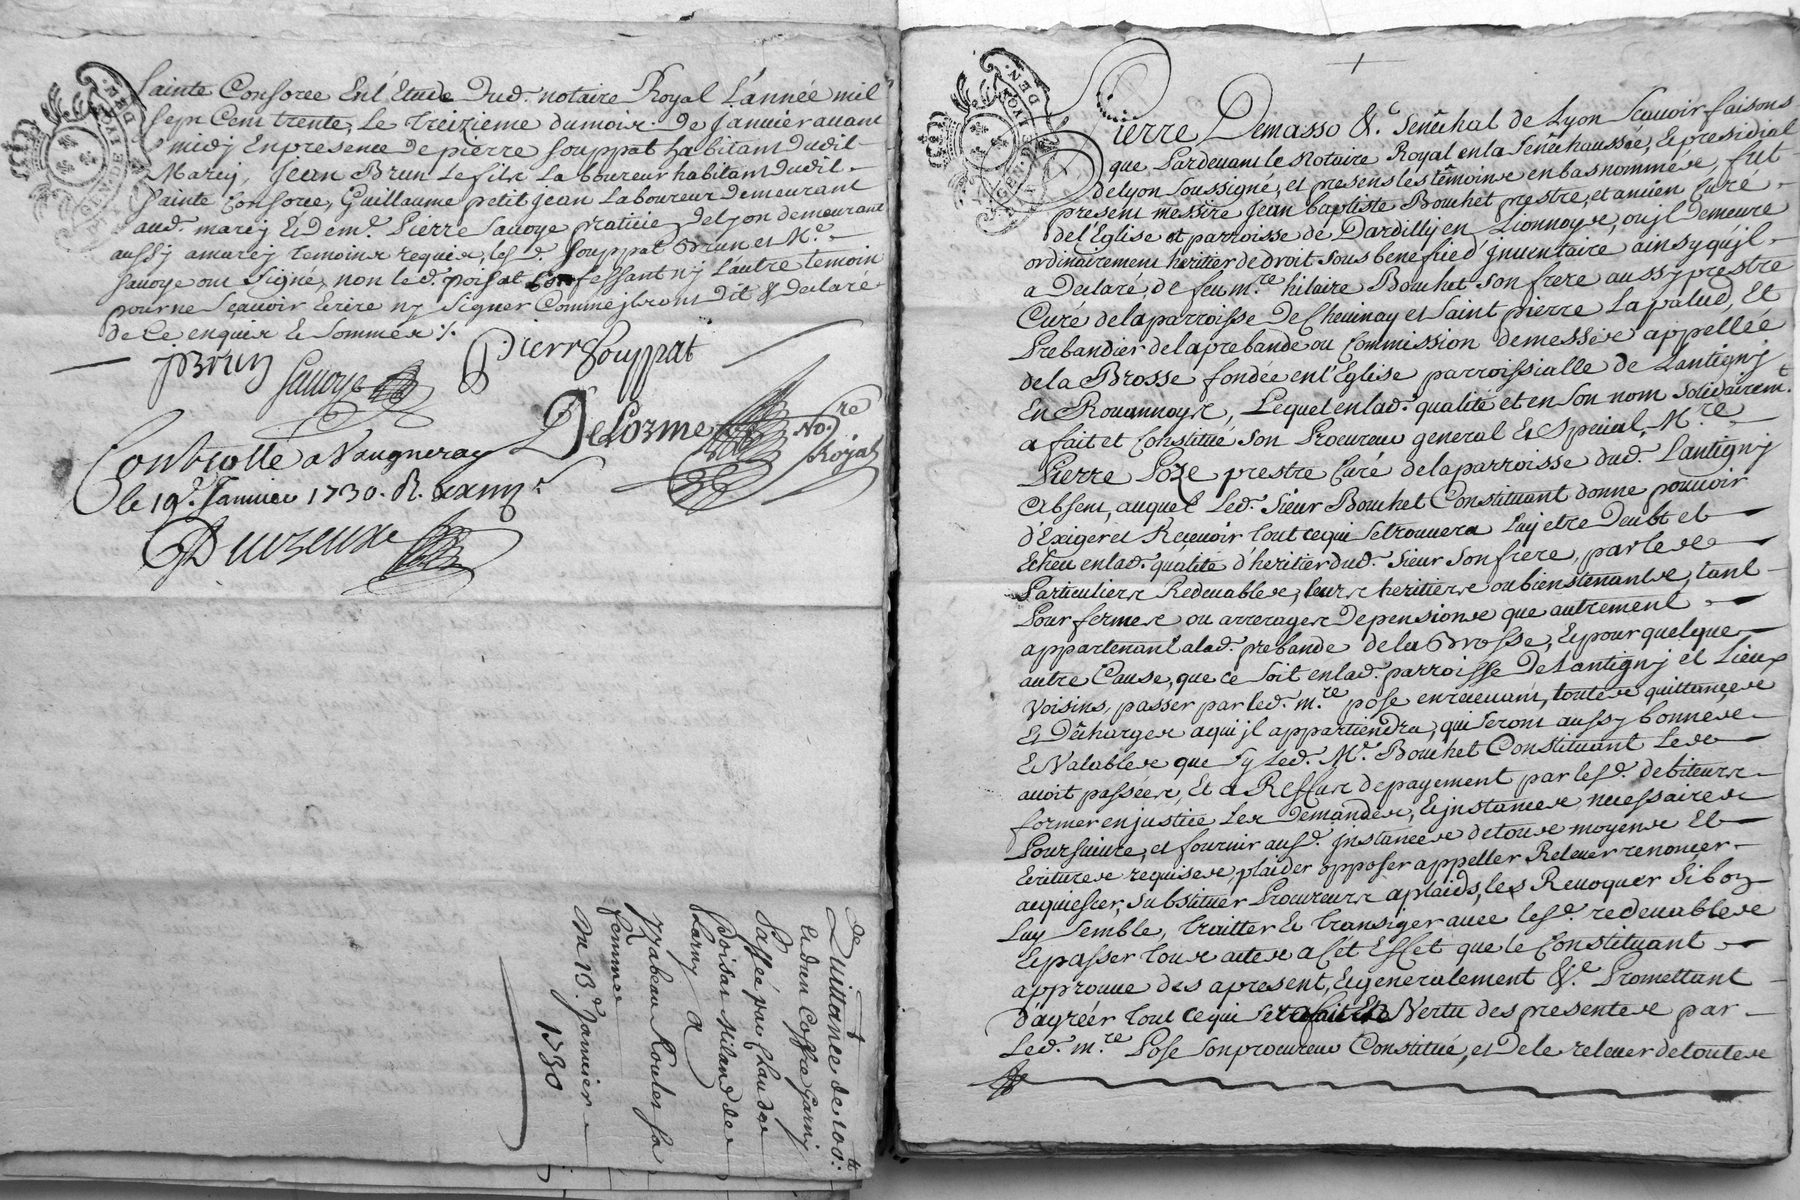 Sainte Consorce En l'Etude Dud. notaire Royal L'année mil
Sept Cent trente, Le treizieme dumois De Janvier avant
midy En presence De pierre Souppat habitant dudit
Marcy, Jean Brun Le fils Laboureur habitant dudit
Sainte Consorce, Guillaume petit jean Laboureur demeurant
aud. marcy Et dem. Pierre Savoye praticie Delyon demeurant
aussy amarcy temoins requis, les d. Souppat Brun et Me.
Savoye ont signé, non led. poisat Confessant ny L'autre temoin
pour ne sçavoir Ecrire ny signer Comme jls ont Dit & declaré
de Ce enquis Et Sommés ./.
JBrun
Savoye
Pierre Souppat
DeLorme No.re Royal
Controllé a Vaugneray
le 19e. Janvier 1730. R.
DGN DE LYON
Quittance de
et dun Coffre Garny
Passée par Claude
Poisat
Larny a
Yzabeau sa
femme
Du 13e. Janvier
1730
Pierre Demasso &c. Senêchal de Lyon Sçavoir faisons
que Pardevant le Notaire Royal en la Senêchaussée, Et presidial
delyon soussigné, et presens les têmoins en bas nommés, fut
present messire Jean baptiste Bouchet prestre, et ancien Curé
de l'Eglise et parroisse de Dardilly en Lionnoys, ou jl Demeure
ordinairement heritier de droit sous benefice d'jnventaire ainsy qu'jl
a Declaré, de feu m.re hilaire Bouchet son frere aussy prestre
Curé de la parroisse De Chevinay et Saint pierre La palud, Et
Prebandier de la prebande ou Commission de messes appellée
de la Brosse fondée en l'Eglise parroissialle de Lantigny
En Rouannoys, Lequel en lad. qualité et en son nom solidairem.t
a fait et Constitué son Procureur general Et special, M.re
Pierre Poze prestre Curé de la parroisse dud. Lantigny
Absent, auquel Led. Sieur Bouchet Constituant donne pouvoir
d'Exiger et Recevoir tout ce qui se trouvera Luy etre Deubt et
Echeu en lad. qualité d'heritier dud. Sieur son frere, par les
Particuliers Redevables, leurs heritiers ou bienstenants, tant
Pour fermes ou arrerages de pensions que autrement
appartenant a lad. prebande de la Brosse, Et pour quelque
autre Cause, que ce soit en lad. parroisse De Lantigny et Lieux
Voisins, passer par led. m.re pose en recevant, toutes quittances
Et Décharges a qui jl appartiendra, qui seront aussy bonnes
Et Valables que sy Led. Mr. Bouchet Constituant Les
avoit passées, Et a Reffus de payement par lesd. debiteurs
former en justice Les Demandes, Et jnstances necessaires
Poursuivre, et fournir ausd. jnstances de tous moyens Et
Ecritures requises, plaider opposer appeller Relever renoncer
acquiescer, substituer Procureurs aplaids, les Revoquer Si bon
Luy semble, traitter Et transiger avec lesd. redevables
Et passer tous actes a Cet Effet que le Constituant
approuve des apresent, Et generalement &c. Promettant
d'agréer tout ce qui sera fait En Vertu des presentes par
Led. m.re Pose son procureur Constitué, et De le relever de toutes